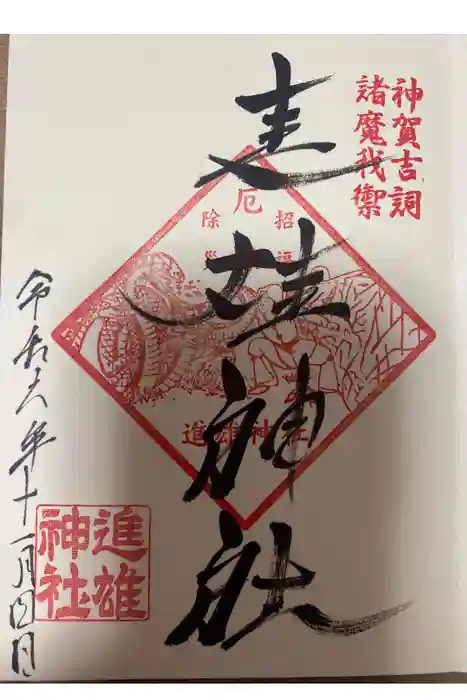 神賀吉詞
諸魔我禦
進雄神社
厄
招福
除災
進雄神社
令和六年十一月四日
進雄
神社